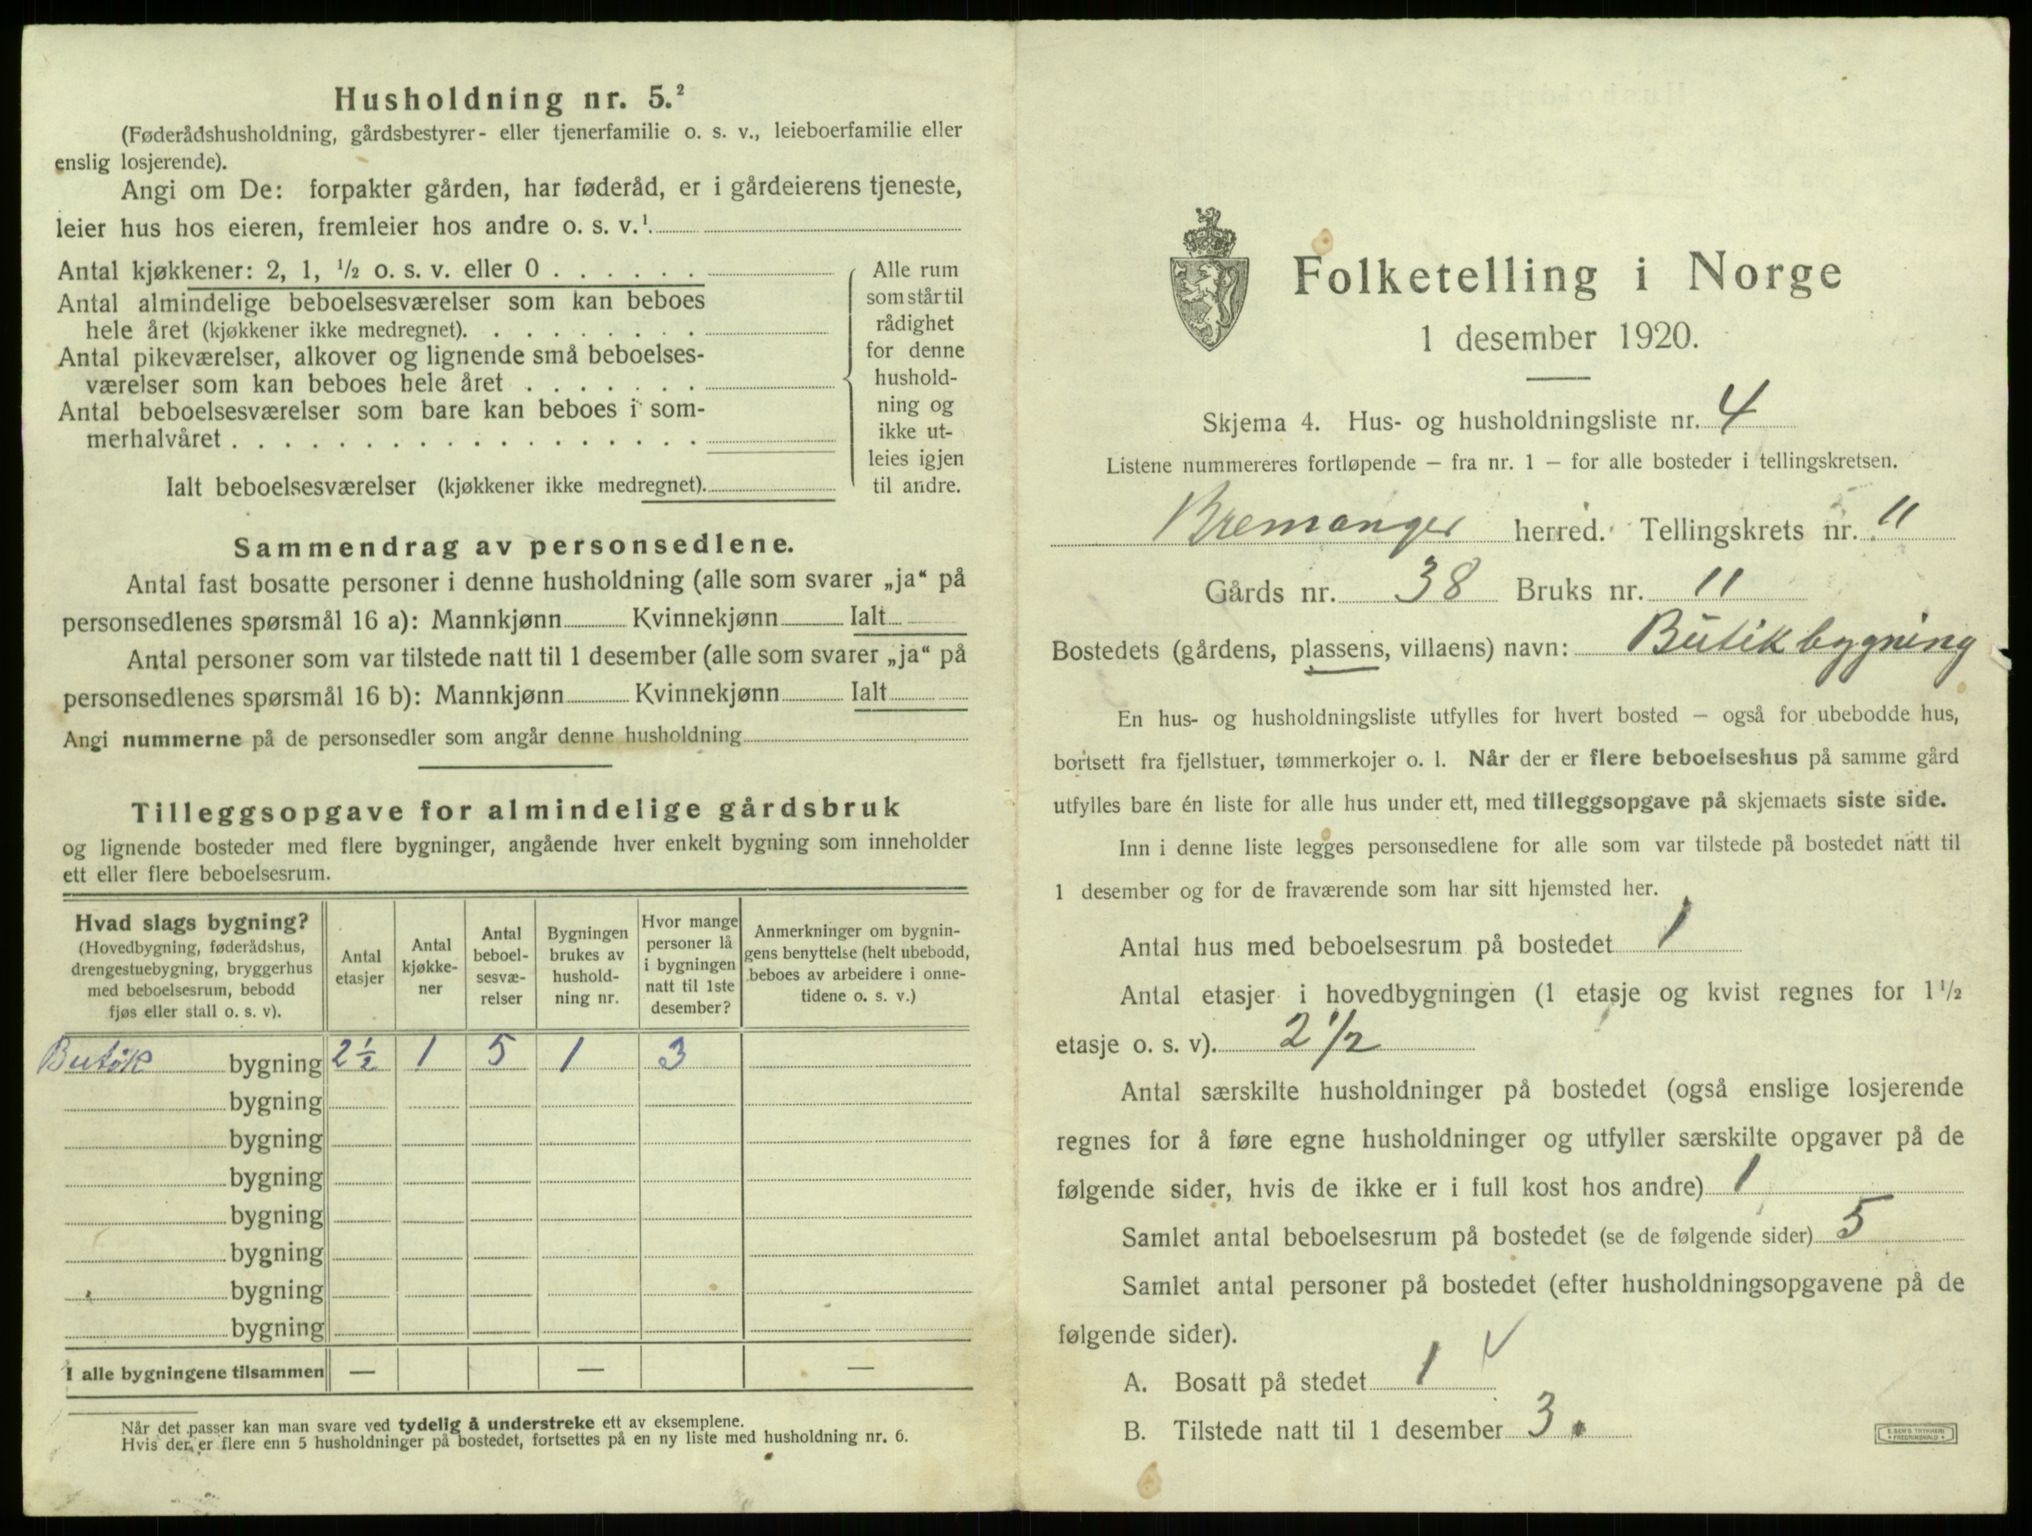 Husholdning nr. 5.²
(Føderådshusholdning, gårdsbestyrer- eller tjenerfamilie o. s. v., leieboerfamilie eller
enslig losjerende).
Angi om De: forpakter gården, har føderåd, er i gårdeierens tjeneste,
leier hus hos eieren, fremleier hos andre o. s. v.¹
Antal kjøkkener: 2, 1, ¹/₂ o. s. v. eller 0
Antal almindelige beboelsesværelser som kan beboes
hele året (kjøkkener ikke medregnet).
Antal pikeværelser, alkover og lignende små beboelses-
værelser som kan beboes hele året
Antal beboelsesværelser som bare kan beboes i som-
merhalvåret
Ialt beboelsesværelser (kjøkkener ikke medregnet).
Alle rum
som står til
rådighet
for denne
hushold-
ning og
ikke ut-
leies igjen
til andre.
Sammendrag av personsedlene.
Antal fast bosatte personer i denne husholdning (alle som svarer „ja“ på
personsedlenes spørsmål 16 a): Mannkjønn Kvinnekjønn Ialt
Antal personer som var tilstede natt til 1 desember (alle som svarer „ja“ på
personsedlenes spørsmål 16 b): Mannkjønn Kvinnekjønn Ialt
Angi nummerne på de personsedler som angår denne husholdning
Tilleggsopgave for almindelige gårdsbruk
og lignende bosteder med flere bygninger, angående hver enkelt bygning som inneholder
ett eller flere beboelsesrum.
Hvad slags bygning?
(Hovedbygning, føderådshus,
drengestuebygning, bryggerhus
med beboelsesrum, bebodd
fjøs eller stall o. s. v).
Antal
etasjer
Antal
kjøkke-
ner
Antal
beboel-
sesvæ-
relser
Bygningen
brukes av
hushold-
ning nr.
Hvor mange
personer lå
i bygningen
natt til 1ste
desember?
Anmerkninger om bygnin-
gens benyttelse (helt ubebodd,
beboes av arbeidere i onne-
tidene o. s. v.)
Butik bygning 2 ½ 1 5 1 3
bygning
bygning
bygning
bygning
bygning
bygning
bygning
I alle bygningene tilsammen — — —
Når det passer kan man svare ved tydelig å understreke ett av eksemplene.
Hvis der er flere enn 5 husholdninger på bostedet, fortsettes på en ny liste med husholdning nr. 6.
Folketelling i Norge
1 desember 1920.
Skjema 4. Hus- og husholdningsliste nr. 4
Listene nummereres fortløpende — fra nr. 1 — for alle bosteder i tellingskretsen.
Bremanger herred. Tellingskrets nr. 11
Gårds nr. 38 Bruks nr. 11
Bostedets (gårdens, plassens, villaens) navn: Butikbygning
En hus- og husholdningsliste utfylles for hvert bosted — også for ubebodde hus,
bortsett fra fjellstuer, tømmerkojer o. l. Når der er flere beboelseshus på samme gård
utfylles bare én liste for alle hus under ett, med tilleggsopgave på skjemaets siste side.
Inn i denne liste legges personsedlene for alle som var tilstede på bostedet natt til
1 desember og for de fraværende som har sitt hjemsted her.
Antal hus med beboelsesrum på bostedet 1
Antal etasjer i hovedbygningen (1 etasje og kvist regnes for 1 ¹/₂
etasje o. s. v). 2 1/2
Antal særskilte husholdninger på bostedet (også enslige losjerende
regnes for å føre egne husholdninger og utfyller særskilte opgaver på de
følgende sider, hvis de ikke er i full kost hos andre) 1
Samlet antal beboelsesrum på bostedet (se de følgende sider) 5
Samlet antal personer på bostedet (efter husholdningsopgavene på de
følgende sider).
A. Bosatt på stedet 1 ✓
B. Tilstede natt til 1 desember 3.
E. SEM'S TRYKKERI
FREDRIKSHALD